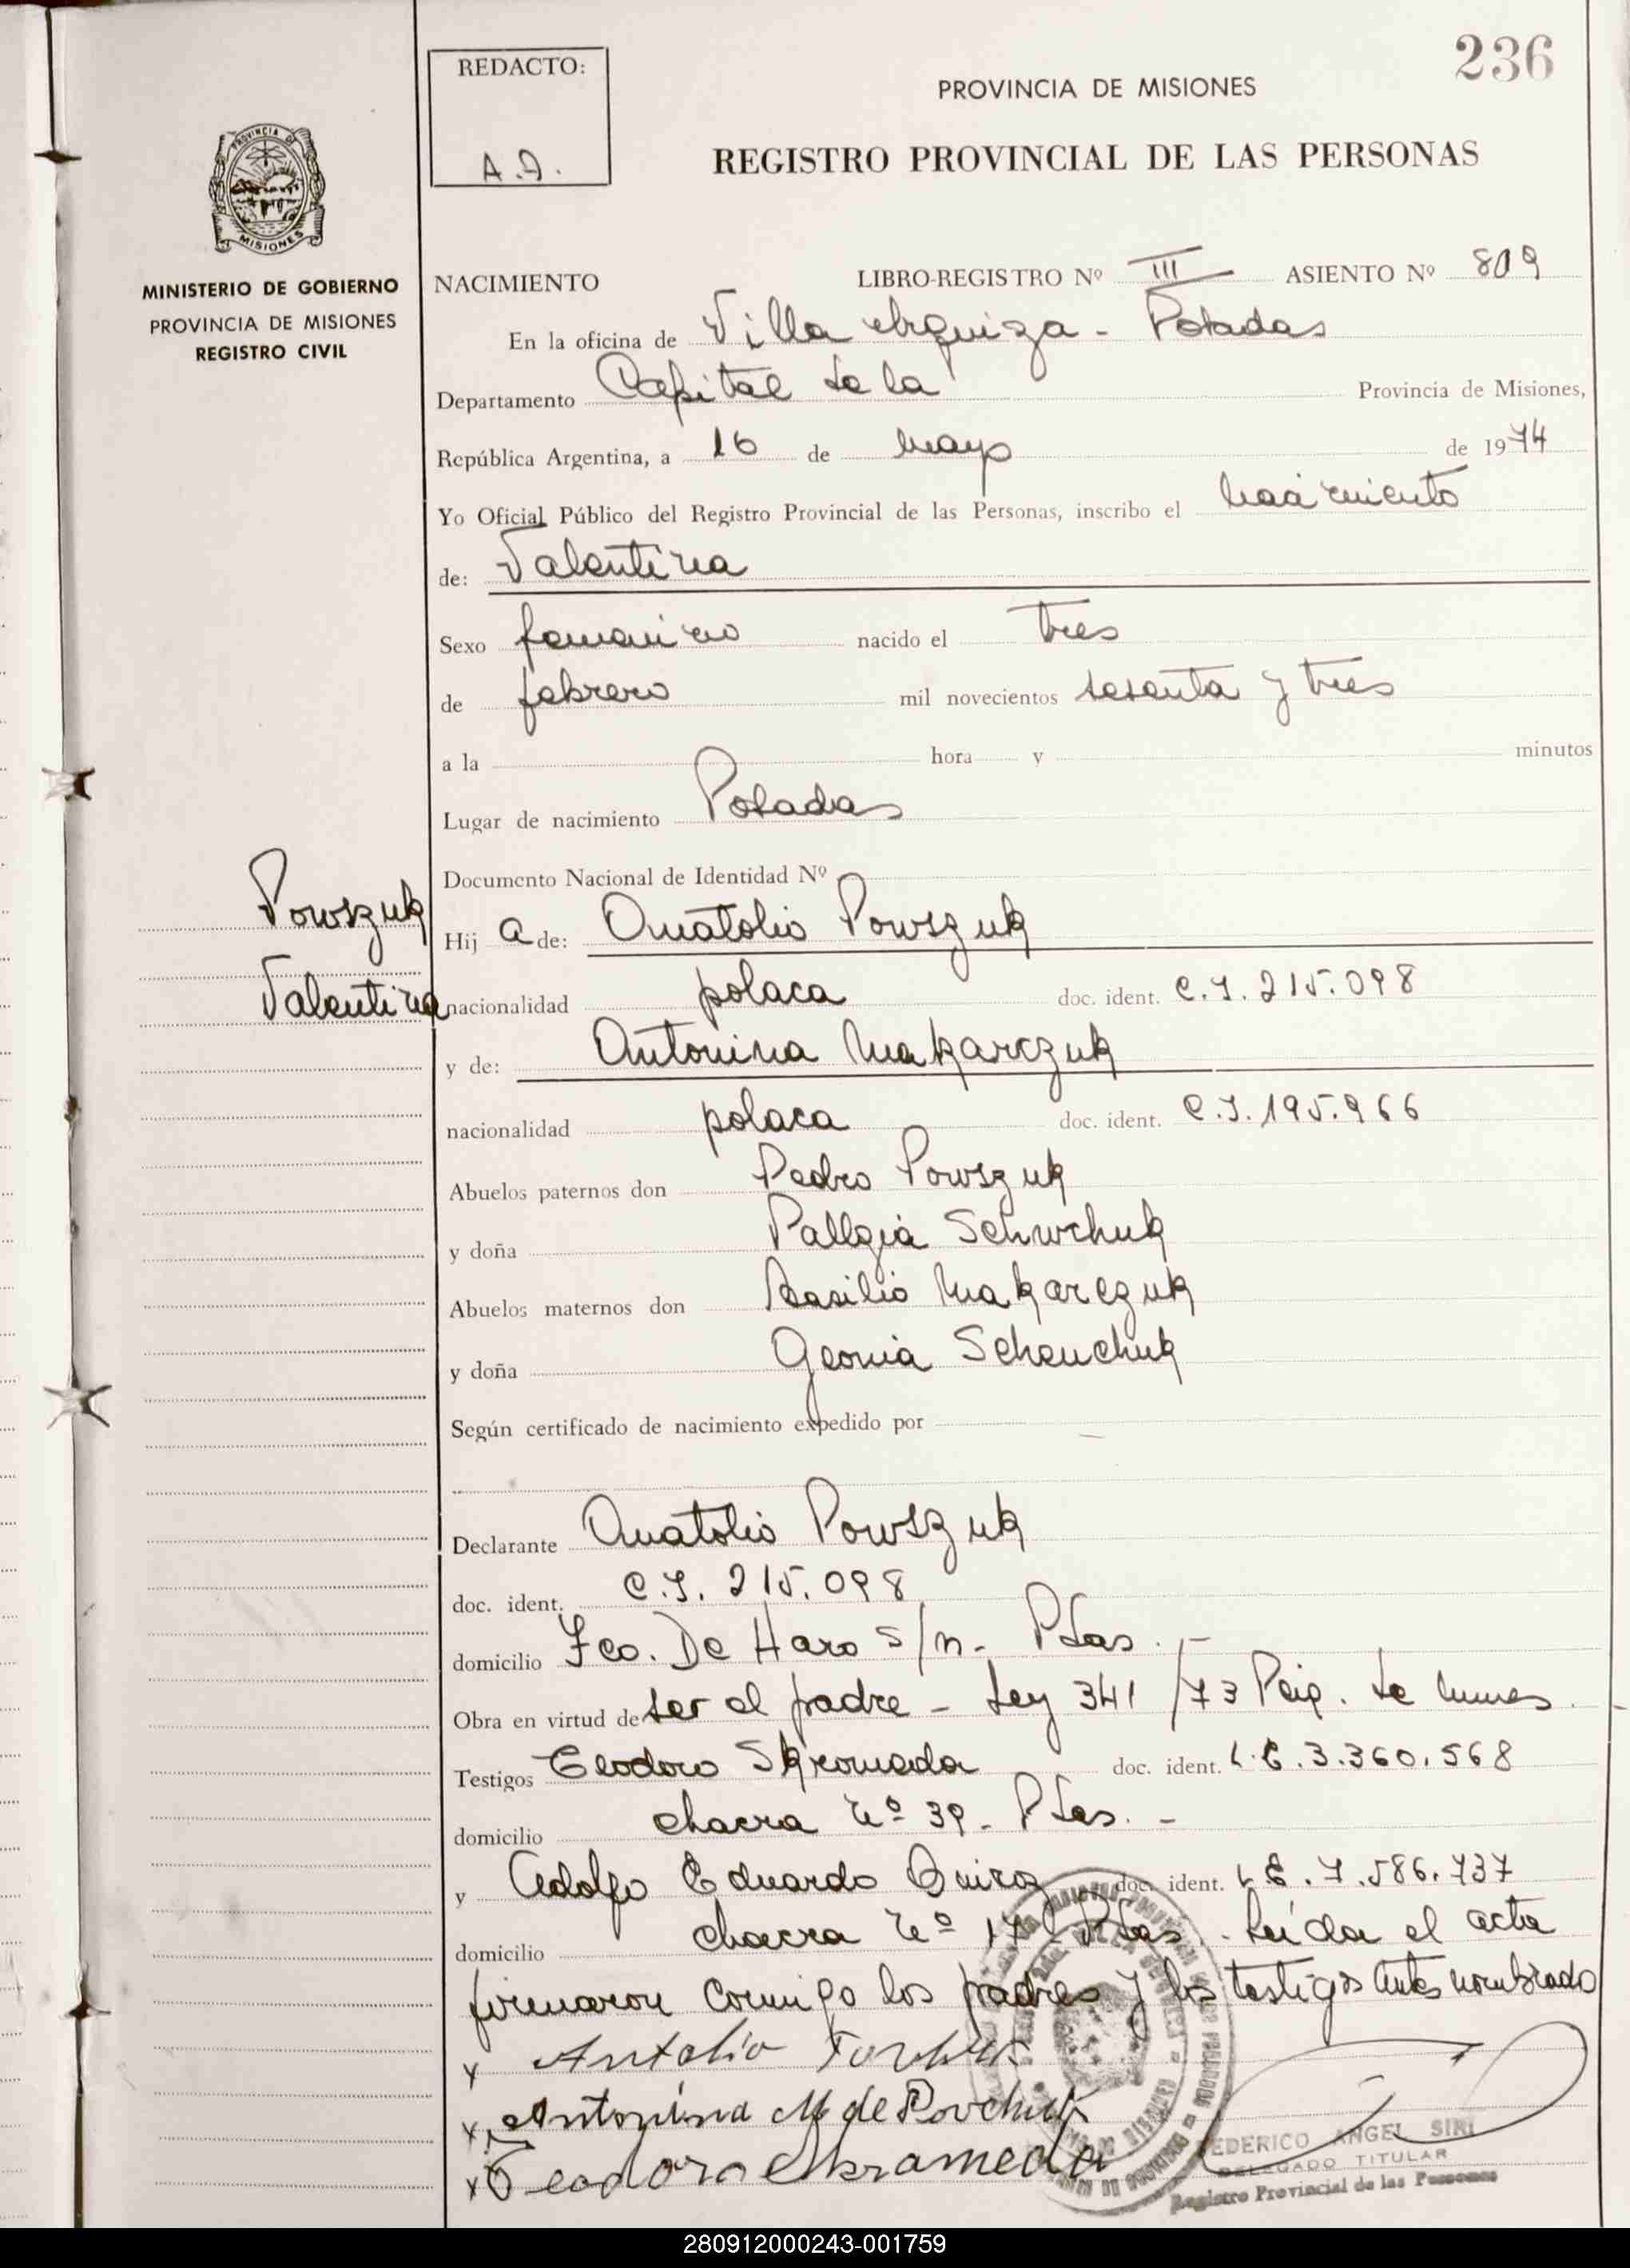 236
REDACTO:
A.A.
PROVINCIA DE MISIONES
REGISTRO PROVINCIAL DE LAS PERSONAS
PROVINCIA DE
MISIONES
MINISTERIO DE GOBIERNO
PROVINCIA DE MISIONES
REGISTRO CIVIL
NACIMIENTO LIBRO-REGISTRO Nº III ASIENTO Nº 809
En la oficina de Villa Urquiza - Posadas
Departamento Capital de la Provincia de Misiones,
República Argentina, a 16 de mayo de 1974
Yo Oficial Público del Registro Provincial de las Personas, inscribo el nacimiento
de: Valentina
Sexo femenino nacido el tres
de febrero mil novecientos sesenta y tres
a la hora y minutos
Lugar de nacimiento Posadas
Documento Nacional de Identidad Nº
Powszuk
Valentina
Hij a de: Anatolio Powszuk
nacionalidad polaca doc. ident. C.I. 215.098
y de: Antonina Makarczuk
nacionalidad polaca doc. ident. C.I. 195.966
Abuelos paternos don Pedro Powszuk
y doña
Abuelos maternos don Basilio Makarczuk
y doña
Según certificado de nacimiento expedido por —
Declarante Anatolio Powszuk
doc. ident. C.I. 215.098
domicilio Fco. De Haro s/n - Pdas. -
Obra en virtud de ser el padre - Ley 341/73
Testigos Teodoro Skromeda doc. ident. L.E. 3.360.568
domicilio chacra nº 39 - Pdas. -
y Adolfo Eduardo Quiroz doc. ident. L.E. 7.586.737
domicilio chacra nº Pdas - Leída el acta
firmaron conmigo los padres y los testigos antes nombrado
x
x Antonina M de Povchuk
x Teodoro Skrameda
FEDERICO ANGEL SIRI
DELEGADO TITULAR
Registro Provincial de las Personas
280912000243-001759